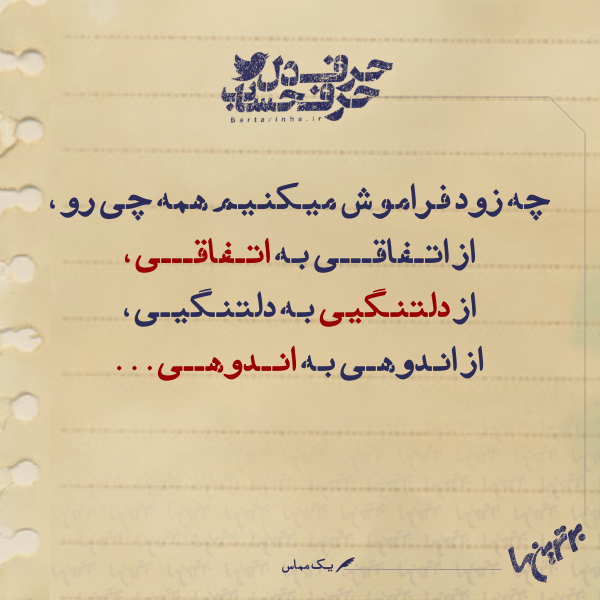 حرف دل
حرف حساب
Bartarinha.ir
چه زود فراموش میکنیم همه چی رو،
از اتـفاقـــی به اتـفاقـــی،
از دلتنگیی به دلتنگیـی،
از انـدوهـی به انــدوهــی...
یک مماس
برترینها